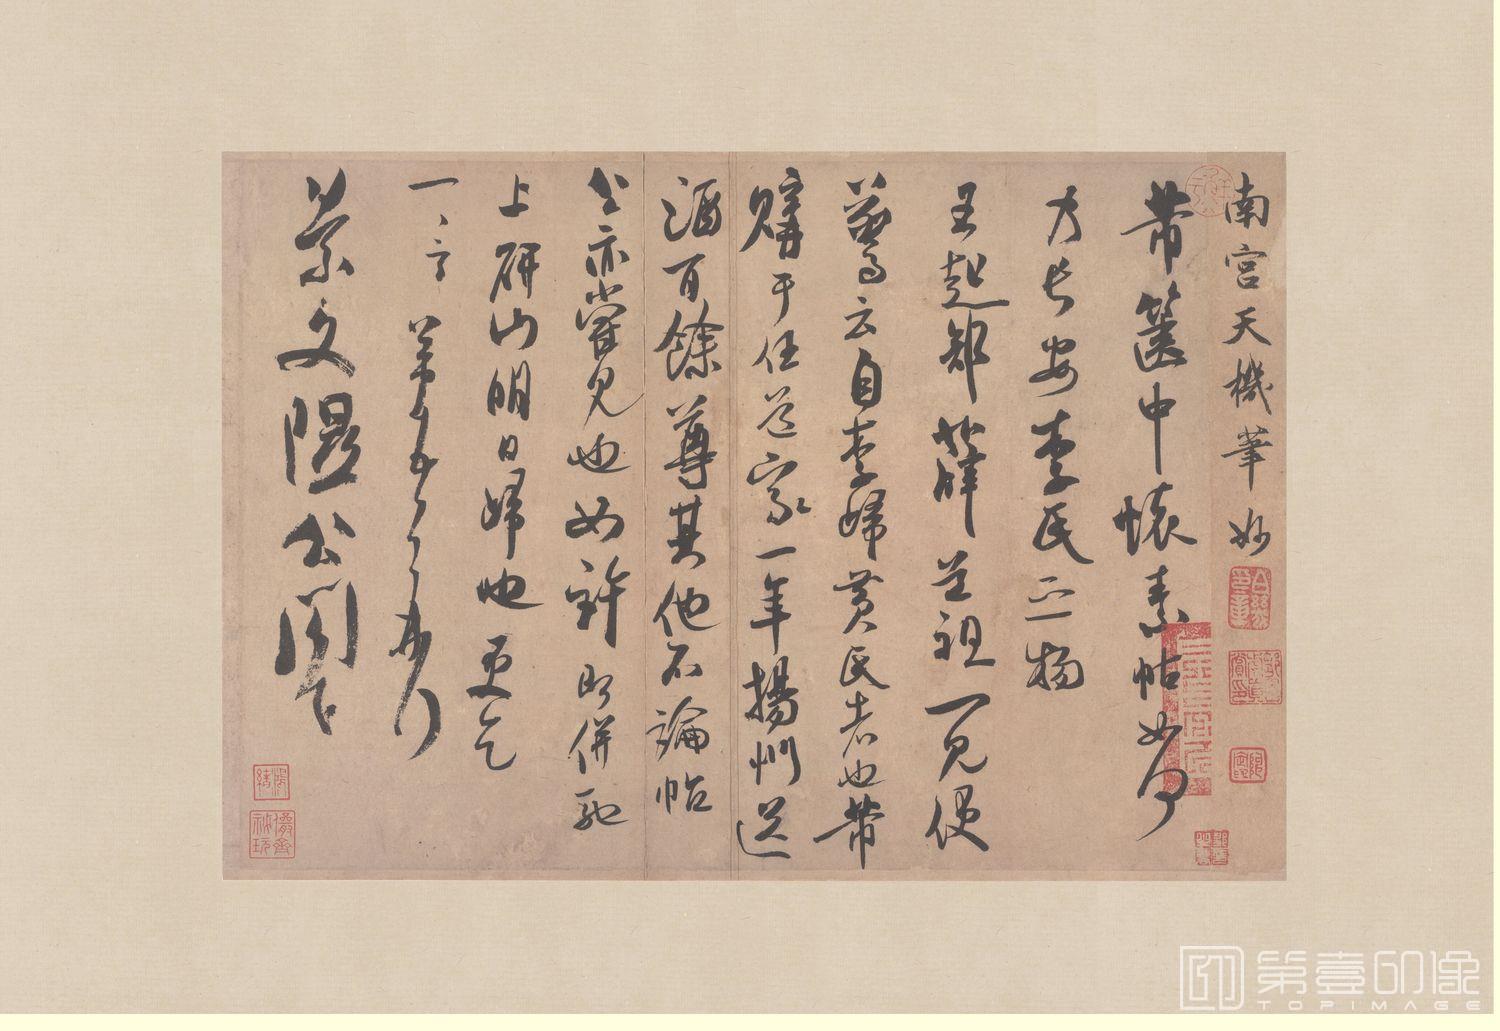 南宮天機筆妙
芾篋中懷素帖如何
乃長安李氏之物
王起部薛道祖一見便
驚云自李歸黃氏者也芾
購于任道家一年揚州送
酒百餘尊其他不論帖
公亦嘗見也如許即併馳
上研山明日歸也更乞
一言芾頓首再拜
景文隰公閣下
第壹印像
TOPIMAGE